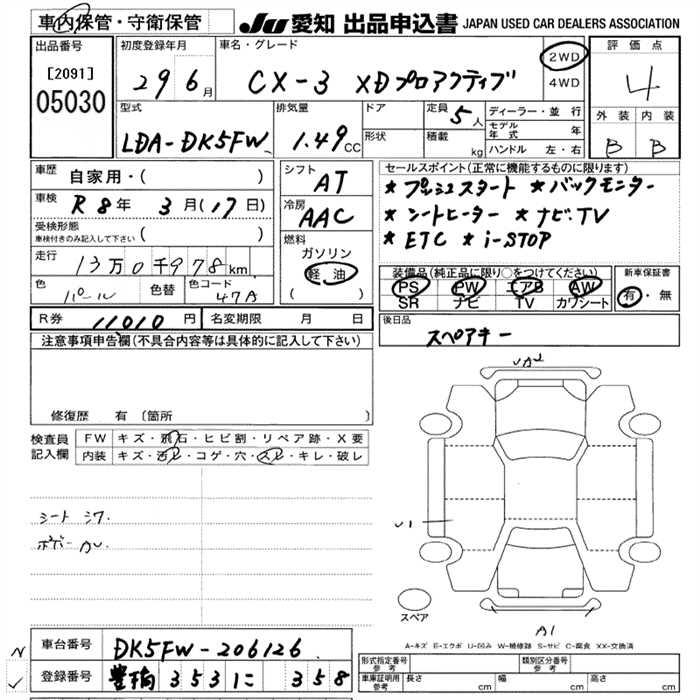 車内保管・守衛保管
JU 愛知 出品申込書 JAPAN USED CAR DEALERS ASSOCIATION
出品番号
[2091]
05030
初度登録年月
29 6月
車名・グレード
CX-3 XDプロアクティブ
2WD
4WD
評価点
4
外装 内装
B B
型式
LDA-DK5FW
排気量
1.49cc
ドア
形状
定員 5人
積載 kg
ディーラー・並行
モデル年式 年
ハンドル 左・右
車歴
自家用・( )
車検
R8年 3月(17日)
受検形態
車検付きのみ記入して下さい ( )
走行
13万0千978km
色
パール
色替
色コード
47A
シフト
AT
冷房
AAC
燃料
ガソリン
軽油
( )
セールスポイント(正常に機能するものに限ります)
★プッシュスタート ★バックモニター
★シートヒーター ★ナビ.TV
★ETC ★i-STOP
装備品(純正品に限り○をつけてください)
PS PW エアB AW
SR ナビ TV カワシート
新車保証書
有・無
R券 11010円
名変期限 月 日
後日品
スペアキー
注意事項申告欄(不具合内容等は具体的に記入して下さい)
修復歴 有(箇所 )
検査員記入欄
FW キズ・飛石・ヒビ割・リペア跡・X要
内装 キズ・汚レ・コゲ・穴・スレ・キレ・破レ
シート シワ.
U1
スペア
A1
A-キズ E-エクボ U-凹み W-補修跡 S-サビ C-腐食 XX-交換済
N
車台番号
DK5FW-206126
登録番号
豊橋 353 に 358
型式指定番号
参考
類別区分番号
参考
車庫証明用
参考
長さ cm
幅 cm
高さ cm